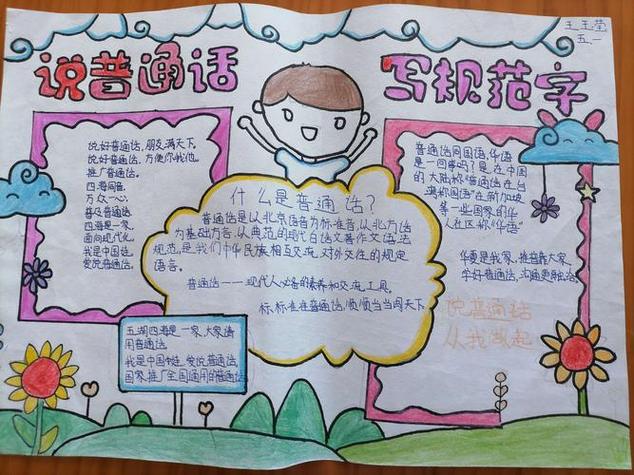 王玉莹
五一
说普通话
写规范字
说好普通话,朋友满天下。
说好普通话,方便你我他。
推广普通话。
四海同音,
万众一心。
普及普通话,
四海是一家。
面向现代化。
我是中国娃,
爱说普通话。
什么是普通话?
普通话是以北京语音为标准音,以北方话
为基础方言,从典范的现代白话文著作文语法
规范,是我们中华民族相互交流,对外交往的规定
语言。
普通话——现代人必备的素养和交流工具。
标标准准普通话,顺顺当当闯天下。
普通话同国语,华语
是一回事吗?是,在中国
的大陆称“普通话在台
湾称国语”在新加坡
等一些国家的华
人社区称“华语”
华夏是我家,推普靠大家。
学好普通话,沟通更融洽。
说普通话
从我做起
五湖四海是一家,大家请
用普通话。
我是中国娃,爱说普通话。
国家推广全国通用的普通话